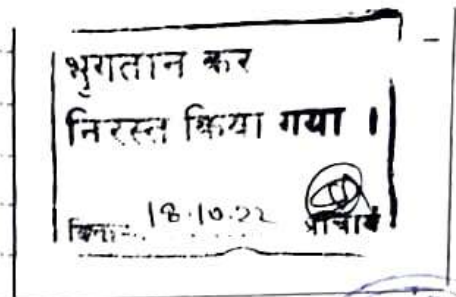 भुगतान कर
निरस्त किया गया ।
दिनां... 18.10.22 प्राचार्य